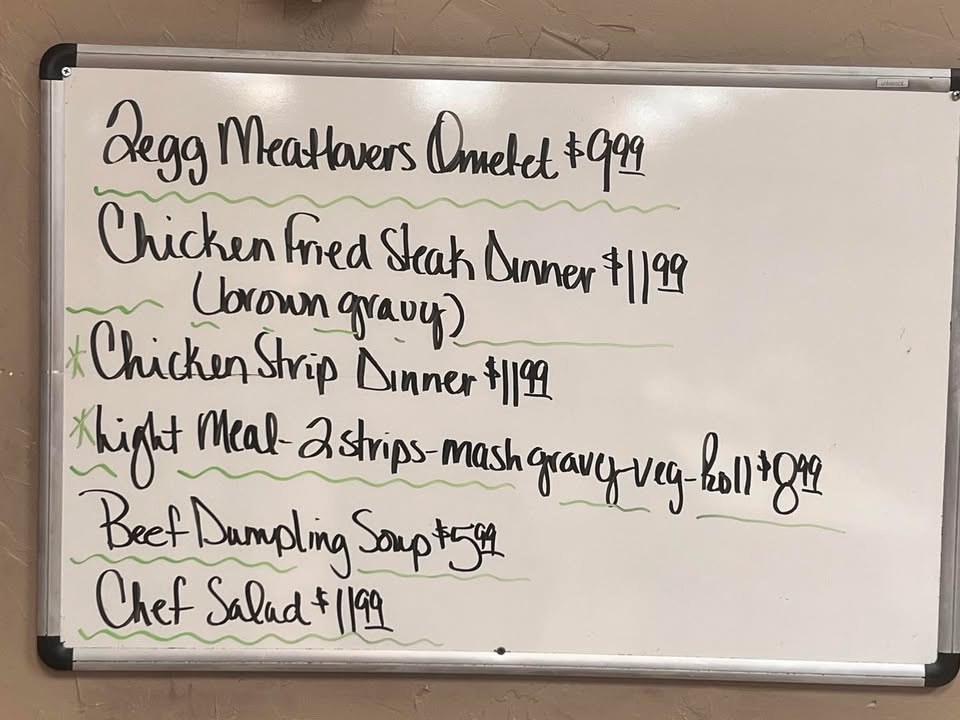 2egg Meatlovers Omelet $9.99
Chicken Fried Steak Dinner $11.99
(brown gravy)
*Chicken Strip Dinner $11.99
*Light Meal - 2 strips - mash gravy - veg - Roll $8.99
Beef Dumpling Soup $5.99
Chef Salad $11.99